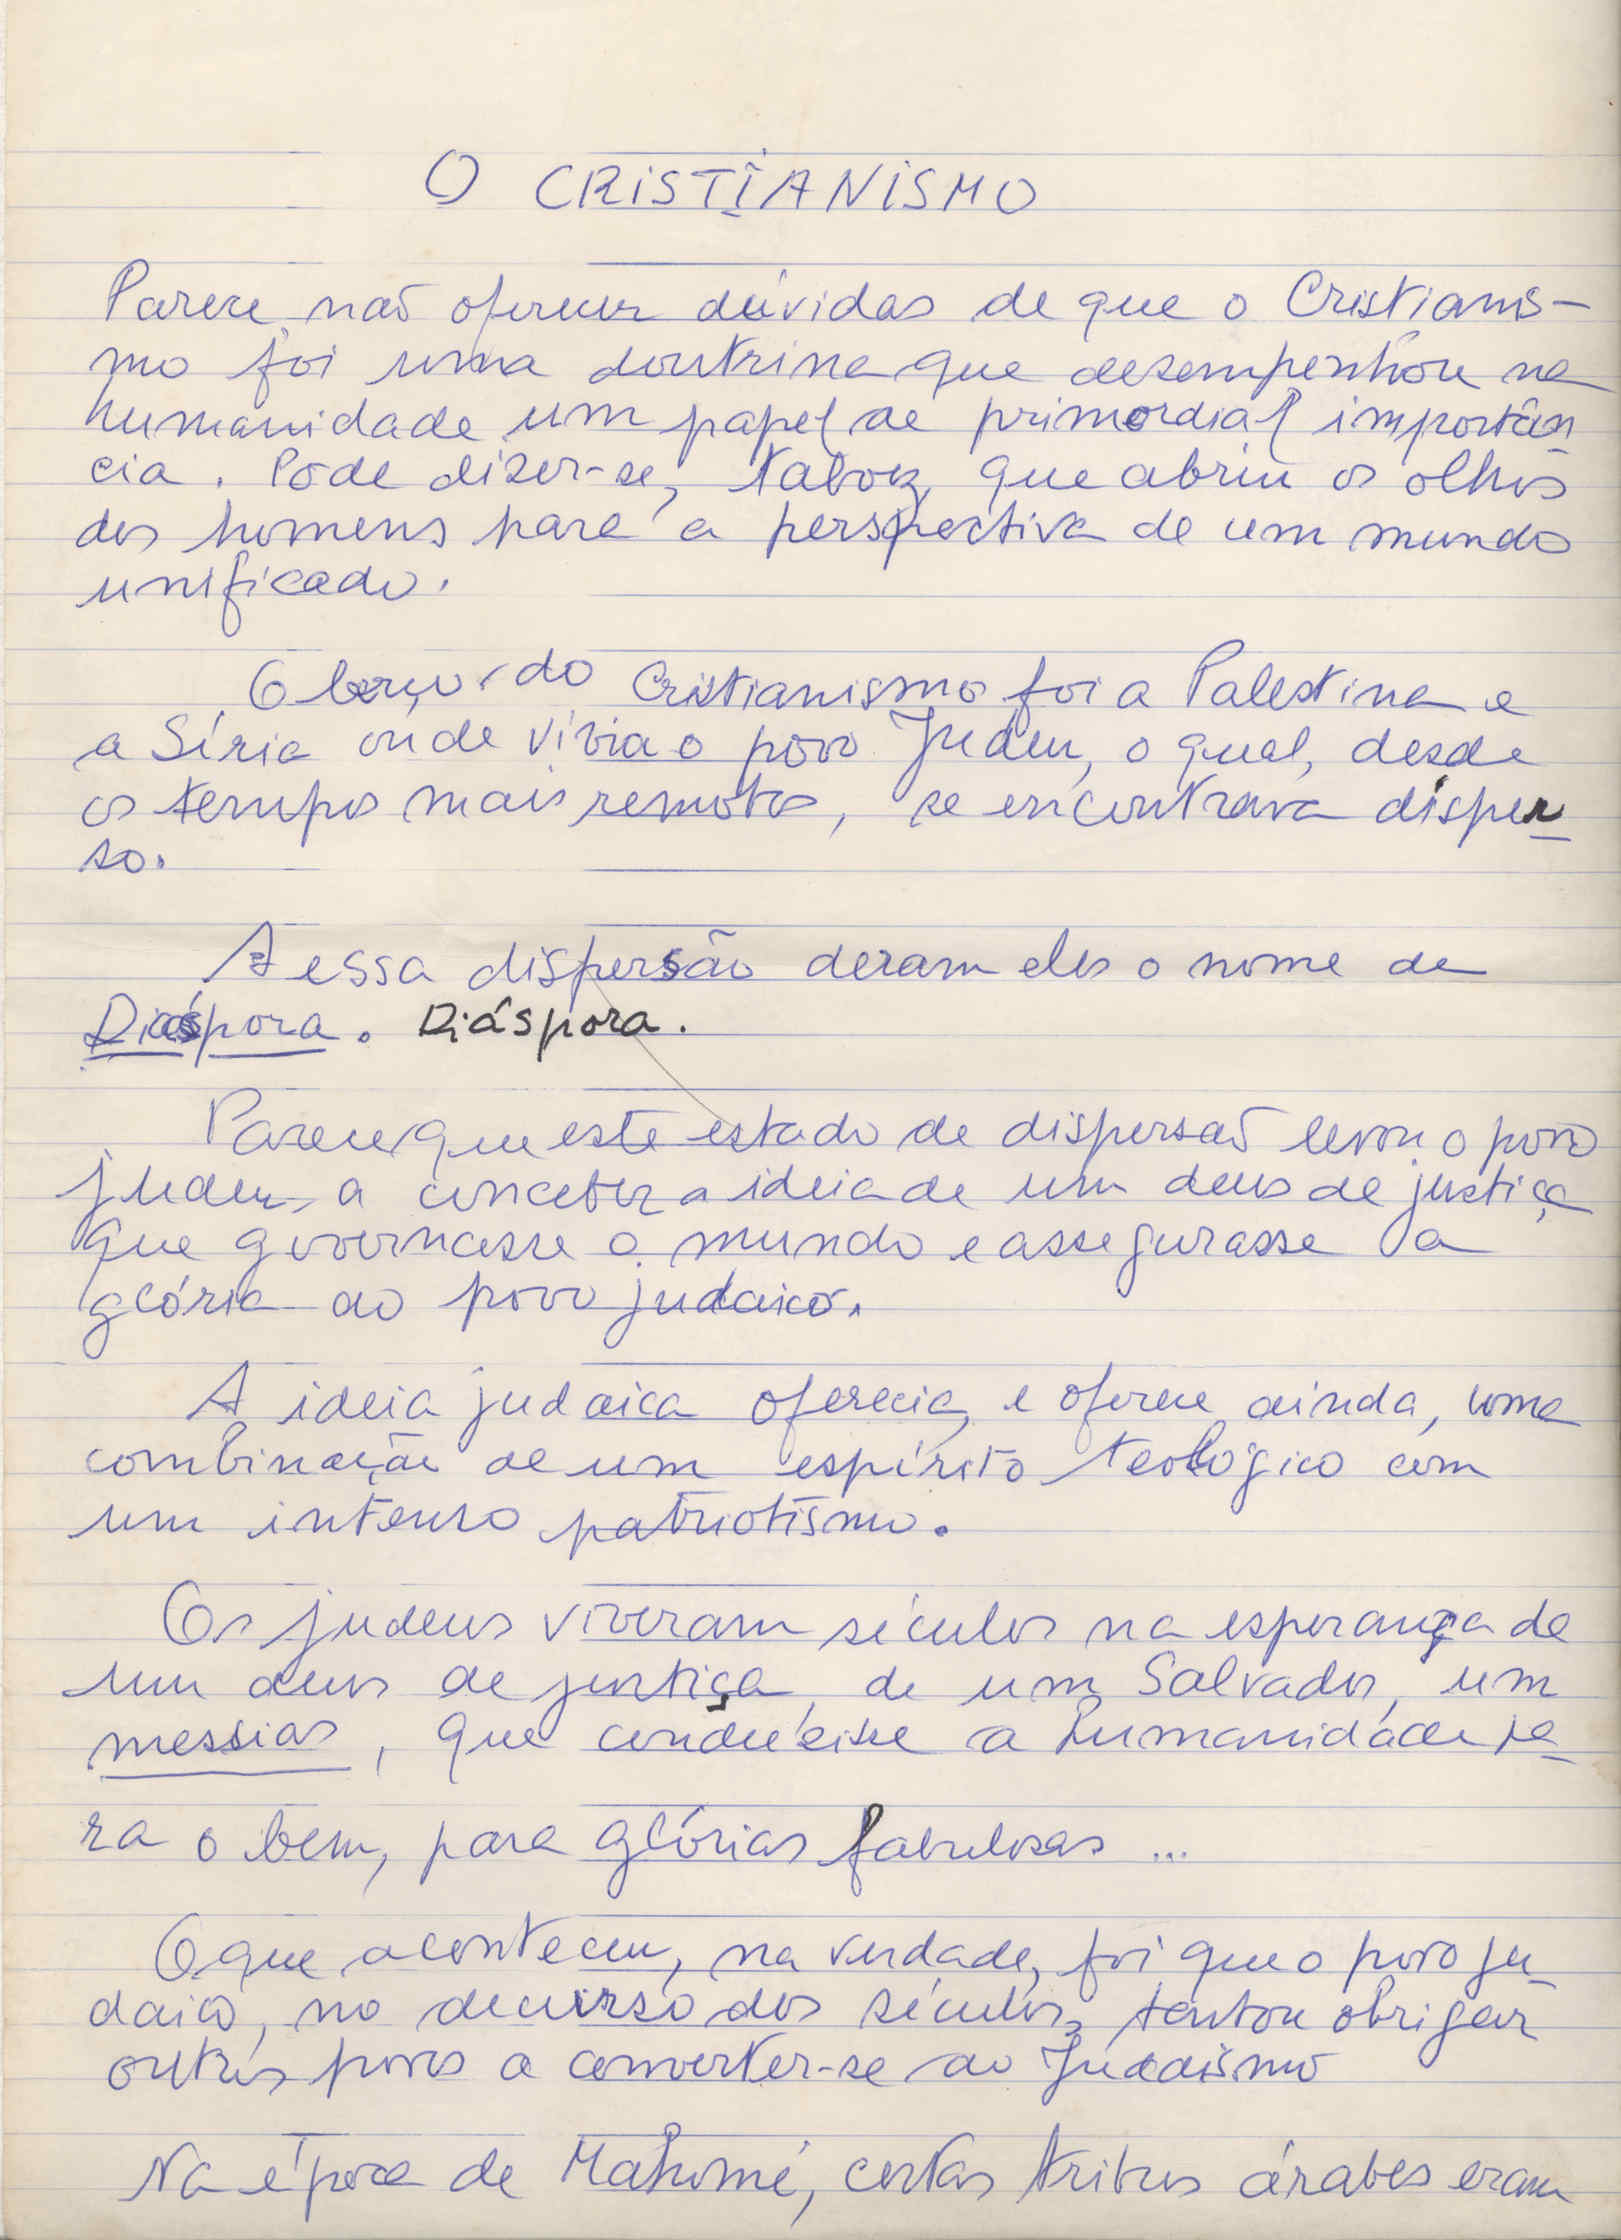 O CRISTIANISMO
Parece não oferecer dúvidas de que o Cristianis-
mo foi uma doutrina que desempenhou na
humanidade um papel de primordial importân
cia. Pode dizer-se, talvez, que abriu os olhos
dos homens para a perspectiva de um mundo
unificado.
O berço do Cristianismo foi a Palestina e
a Síria onde vivia o povo Judeu, o qual, desde
os tempos mais remotos, se encontrava disper
so.
A essa dispersão deram eles o nome de
Diáspora. Diáspora.
Parece que este estado de dispersão levou o povo
judeu, a conceber a ideia de um deus de justiça
que governasse o mundo e assegurasse a
glória ao povo judaico.
A ideia judaica oferecia, e oferece ainda, uma
combinação de um espírito teológico com
um intenso patriotismo.
Os judeus viveram séculos na esperança de
um deus de justiça, de um Salvador, um
messias, que conduzisse a humanidade pa
ra o bem, para glórias fabulosas ...
O que aconteceu, na verdade, foi que o povo ju
daico, no decurso dos séculos, tentou obrigar
outros povos a converter-se ao Judaísmo
Na época de Mahomé, certas tribus árabes eram